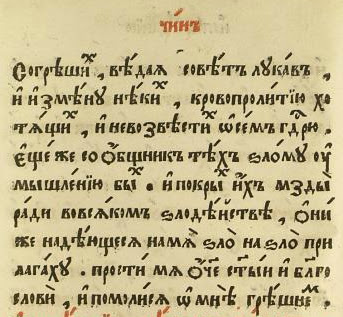 чи́нъ
Согрѣши́х , вѣ́дая совѣ́тъ лука́въ ,
и҆ и҆змѣ́ну нѣ́ки́х , кровопроли́тїю хо
тя́щи́х , и҆ невозвѣсти́х ѡ҆ се́мъ гдⷭ҇рю .
Е҆ще́ же со ѻ҆́бщникъ тѣ́хъ ѕло́му оу҆
мышле́нїю бы́х . и҆ покры́х и҆́хъ мзды̀
ра́ди во вся́комъ ѕлодѣ́йствѣ , ѻ҆ни́
же надѣ́ющеся на мя̀ ѕло̀ на ѕло̀ при
лага́ху . прости́ мя ѻ҆́ч҃е ст҃ы́и и҆ бл҃го
словѝ , и҆ помоли́ся ѡ҆ мнѣ̀ грѣ́шне́м .